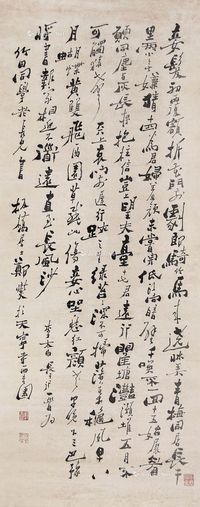 妾髮初覆額折花門前劇郎騎竹馬來遶床弄青梅同居長干
里兩小無嫌猜十四為君婦羞顏未嘗開低頭向暗壁千喚不一回十五始展眉
願同塵與灰長存抱柱信豈上望夫臺十六君遠行瞿塘灩澦堆五月不
可觸猿聲天上哀門前遲行跡一一生綠苔苔深不能掃落葉秋風早八
月蝴蝶黃雙飛西園草感此傷妾心坐愁紅顏老早晚下三巴
將書報家相迎不道遠直至長風沙 李太白長干行一首為
同學長兄書 板橋鄭燮於天寧寺西園